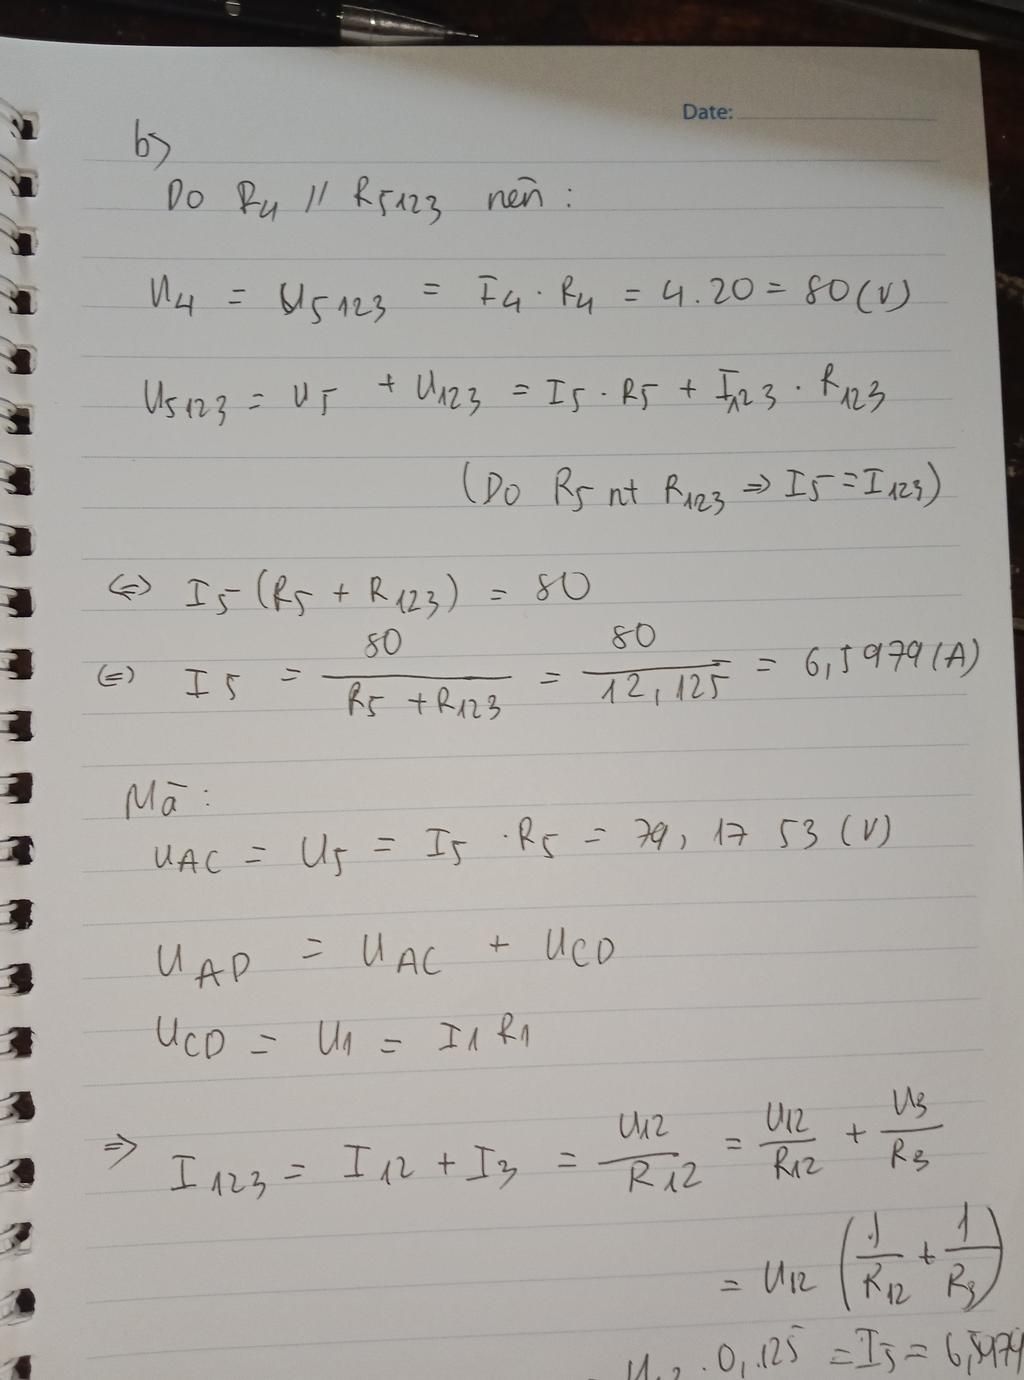 Date:
b)
Do R4 // R5123 nên :
U4 = U5123 = I4 . R4 = 4.20 = 80 (V)
U5123 = U5 + U123 = I5 . R5 + I123 . R123
(Do R5 nt R123 ⇒ I5 = I123)
⇔ I5 (R5 + R123) = 80
⇔ I5 = 80 / (R5 + R123) = 80 / 12,125 = 6,5979 (A)
Mà :
UAC = U5 = I5 . R5 = 79,1753 (V)
UAD = UAC + UCD
UCD = U1 = I1 R1
⇒ I123 = I12 + I3 = U12 / R12 = U12 / R12 + U3 / R3
= U12 (1 / R12 + 1 / R3)
. 0,125 = I5 = 6,5979